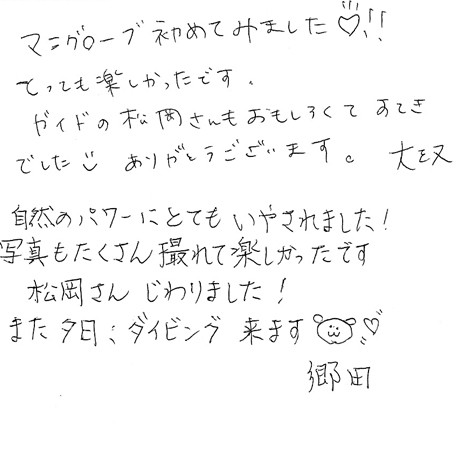 マングローブ初めてみました♡!!
とっても楽しかったです。
ガイドの松岡さんもおもしろくて すてき
でした☺ ありがとうございます。
自然のパワーにとても いやされました!
写真もたくさん撮れて楽しかったです
松岡さん じわりました!
また夕日、ダイビング 来ます ♡
郷田